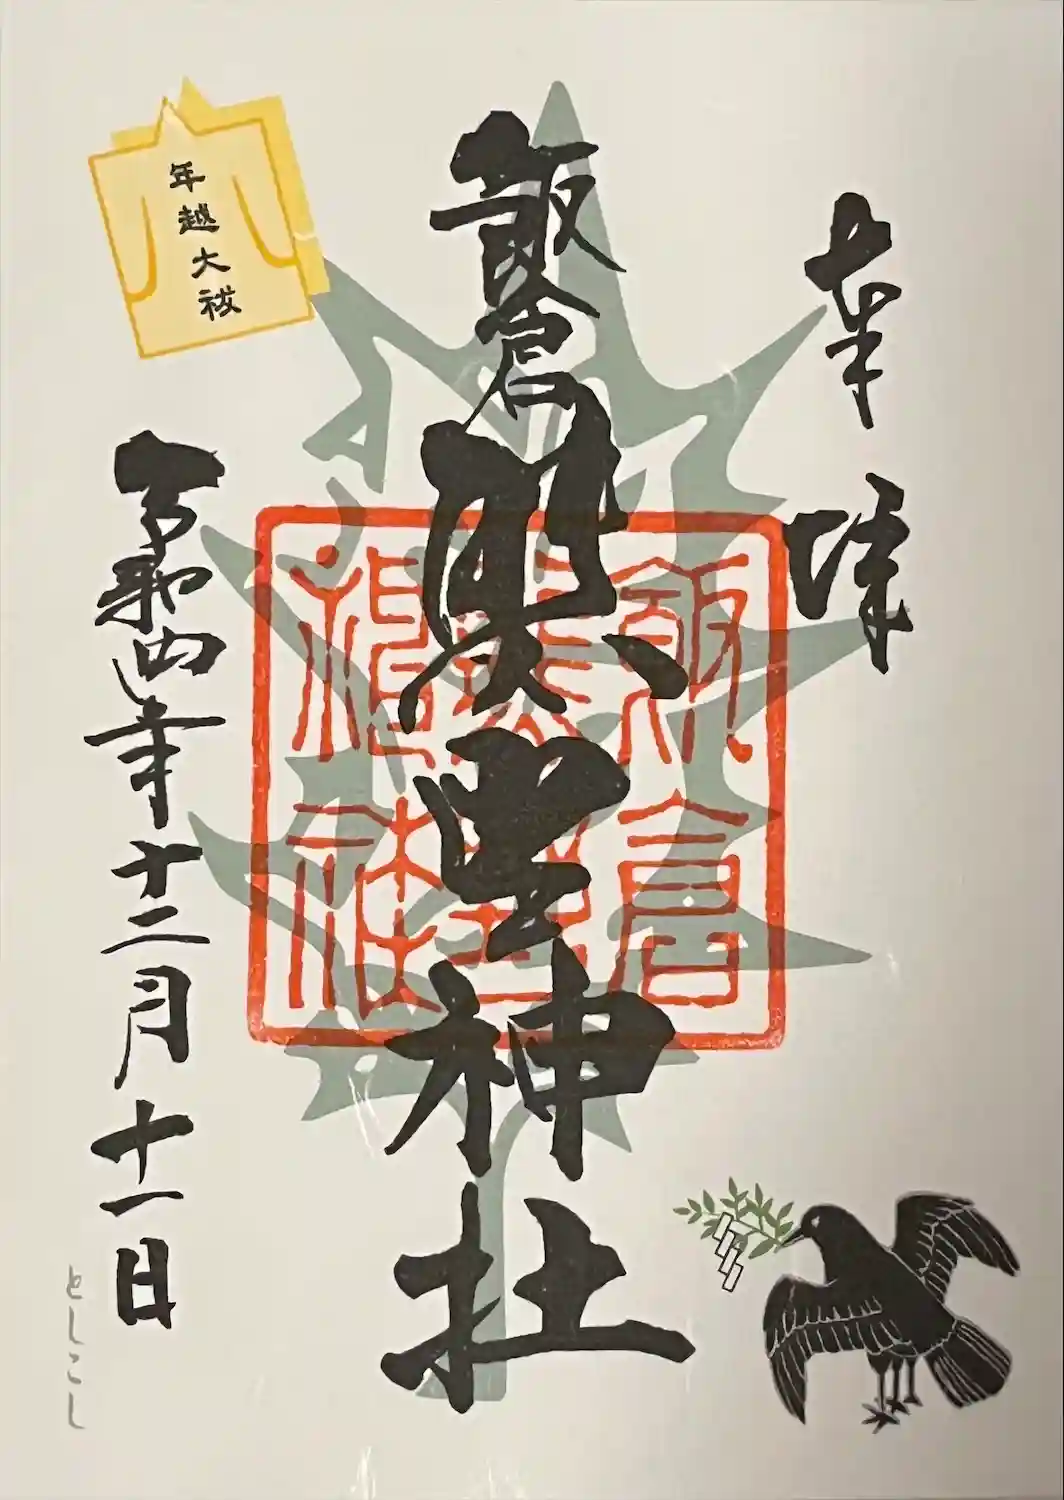 奉拝
飯倉熊野神社
飯倉
熊野
神社
年越大祓
令和四年十二月十一日
としこし